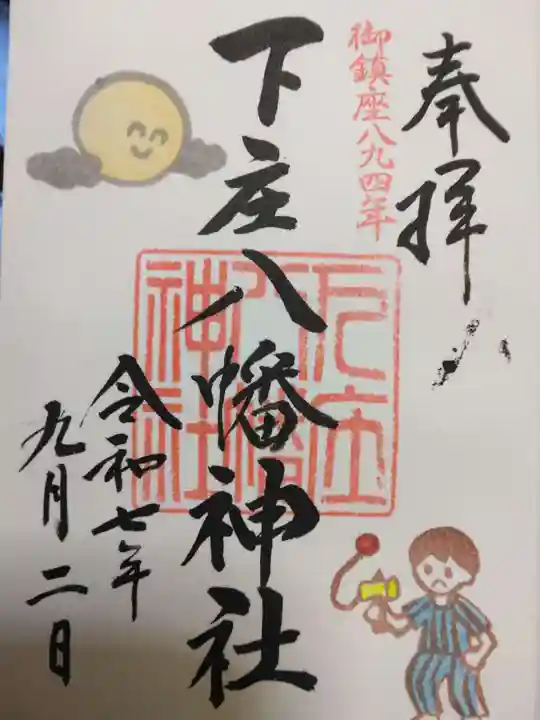 奉拝
御鎮座八九四年
下庄八幡神社
下庄
八幡
神社
令和七年
九月二日